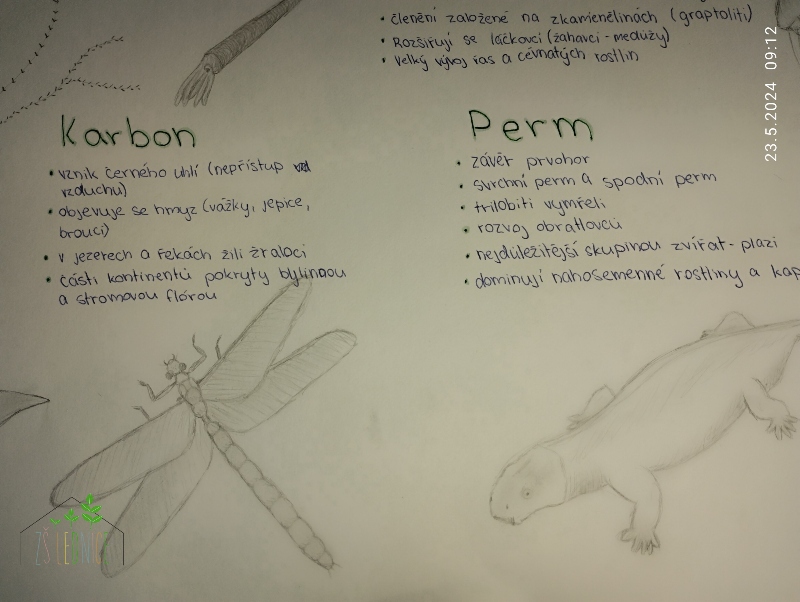 • členění založené na zkamenělinách (graptoliti)
• Rozšiřují se láčkovci (žahavci - medúzy)
• Velký vývoj řas a cévnatých rostlin
Karbon
• vznik černého uhlí (nepřístup
vzduchu)
• objevuje se hmyz (vážky, jepice,
brouci)
• v jezerech a řekách žili žraloci
• části kontinentů pokryty bylinnou
a stromovou flórou
Perm
• závěr prvohor
• svrchní perm a spodní perm
• trilobiti vymřeli
• rozvoj obratlovců
• nejdůležitější skupinou zvířat - plazi
• dominují nahosemenné rostliny a kap
23.5.2024 09:12